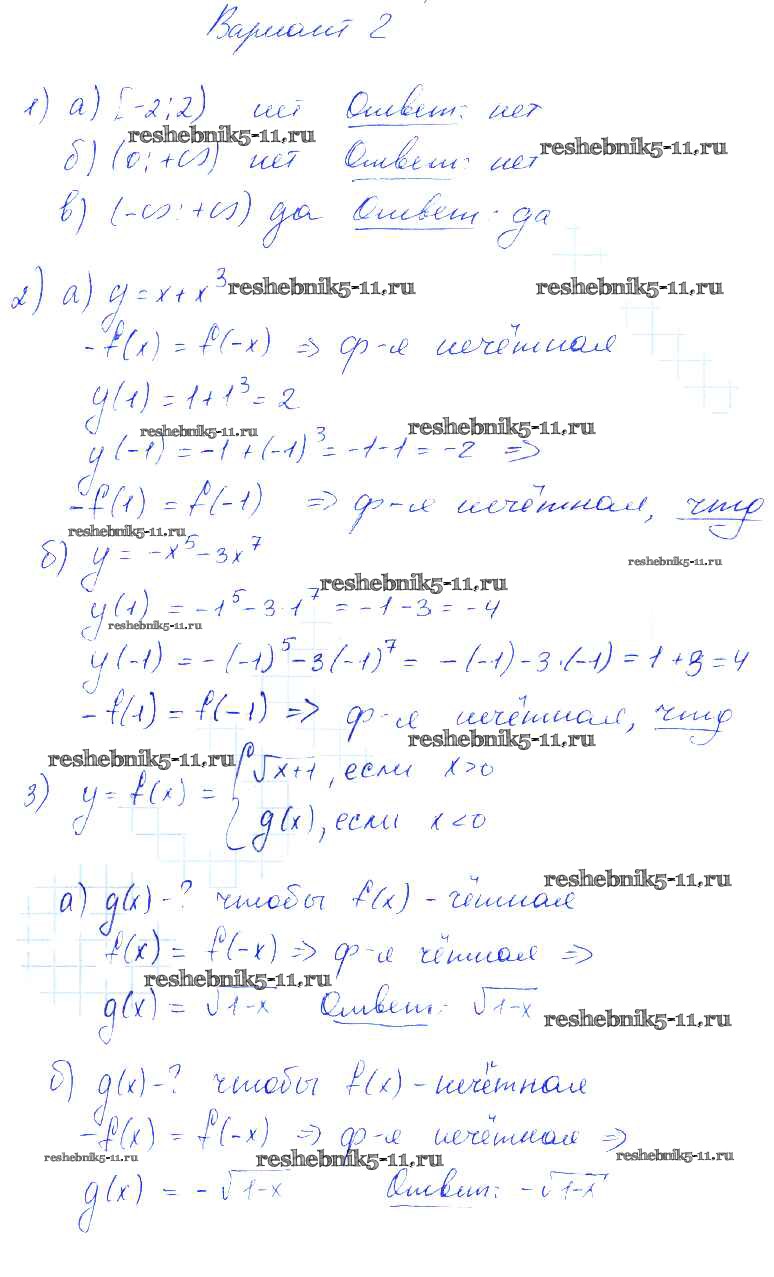 Вариант 2
1) а) [-2; 2) нет Ответ: нет
reshebnik5-11.ru
reshebnik5-11.ru
б) (0; +∞) нет Ответ: нет
в) (-∞; +∞) да Ответ: да
2) а) y = x + x³ reshebnik5-11.ru reshebnik5-11.ru
-f(x) = f(-x) => ф-я нечётная
y(1) = 1 + 1³ = 2
reshebnik5-11.ru reshebnik5-11.ru
y(-1) = -1 + (-1)³ = -1 - 1 = -2 =>
-f(1) = f(-1) => ф-я нечётная, чтд
reshebnik5-11.ru
б) y = -x⁵ - 3x⁷
reshebnik5-11.ru
reshebnik5-11.ru
y(1) = -1⁵ - 3·1⁷ = -1 - 3 = -4
reshebnik5-11.ru
y(-1) = -(-1)⁵ - 3(-1)⁷ = -(-1) - 3·(-1) = 1 + 3 = 4
-f(1) = f(-1) => ф-я нечётная, чтд
reshebnik5-11.ru
reshebnik5-11.ru
3) y = f(x) = { √x+1, если x>0
g(x), если x<0
reshebnik5-11.ru
а) g(x) - ? чтобы f(x) - чётная
f(x) = f(-x) => ф-я чётная =>
reshebnik5-11.ru
g(x) = √1-x Ответ: √1-x
reshebnik5-11.ru
б) g(x) - ? чтобы f(x) - нечётная
-f(x) = f(-x) => ф-я нечётная =>
reshebnik5-11.ru reshebnik5-11.ru reshebnik5-11.ru
g(x) = -√1-x Ответ: -√1-x